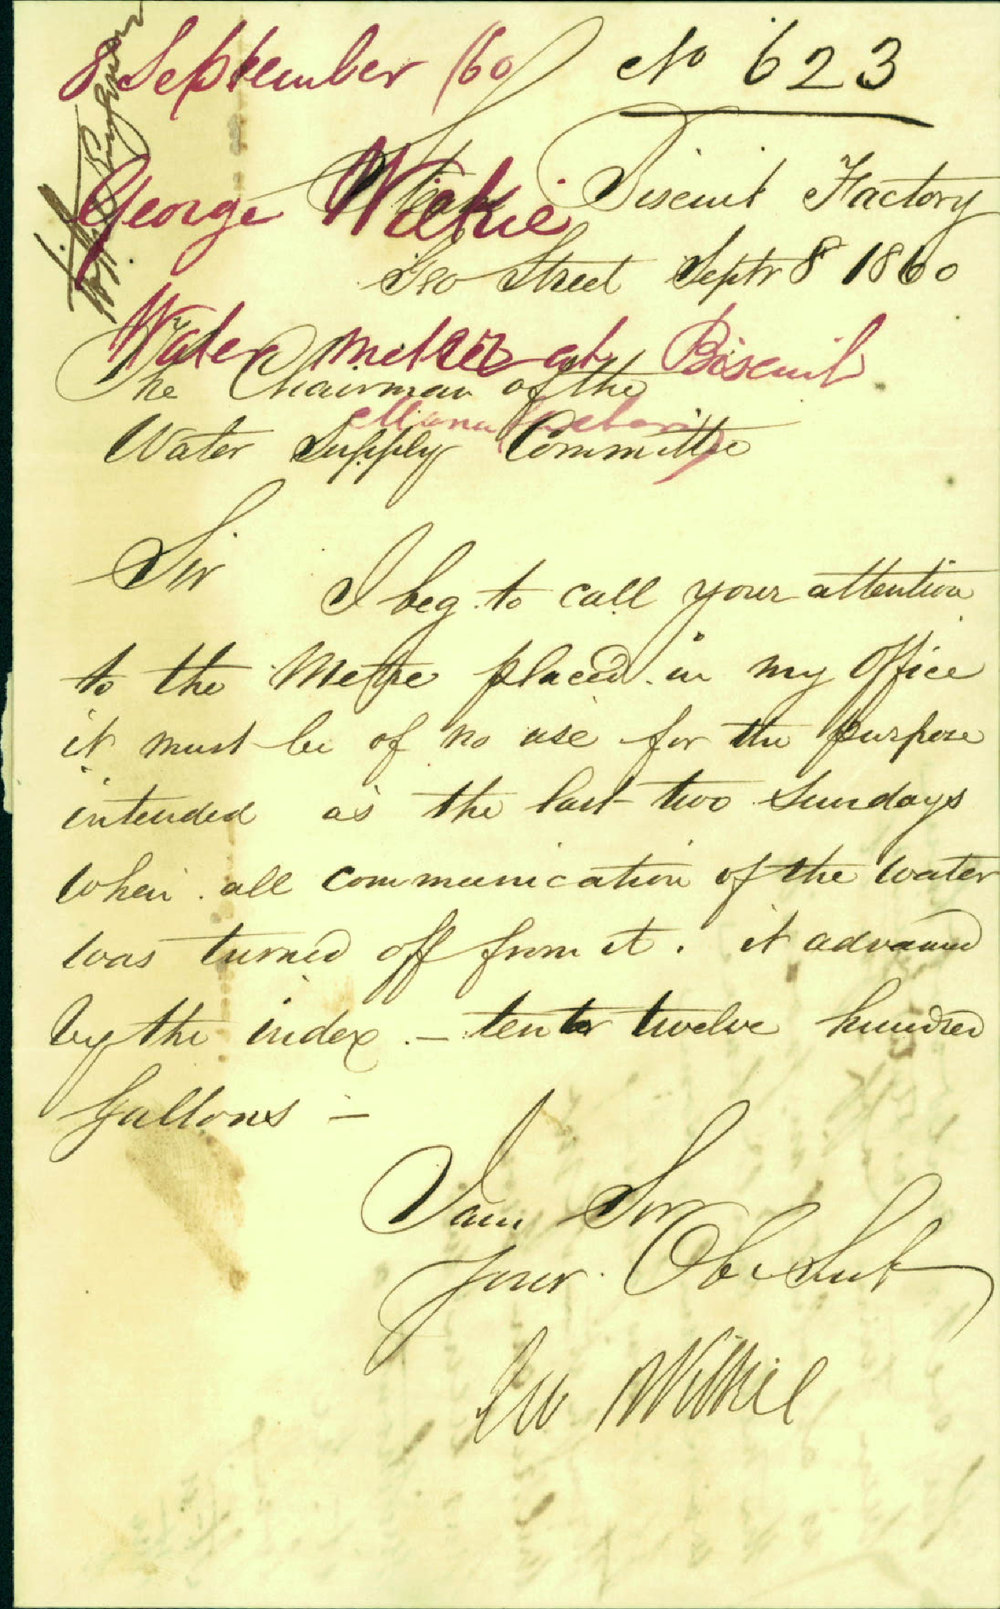 8 September /60 No 623
George Wilkie
Steam Biscuit Factory
Geo Street Septr 8 1860
Water meter at Biscuit
Manufactory
The Chairman of the
Water Supply Committee
Sir
I beg to call your attention
to the Metre placed in my Office
it must be of no use for the purpose
intended as the last two Sundays
when all communication of the water
was turned off from it. it advanced
by the index. – ten to twelve hundred
Gallons –
I am Sir
Your Obt Svt
Geo Wilkie